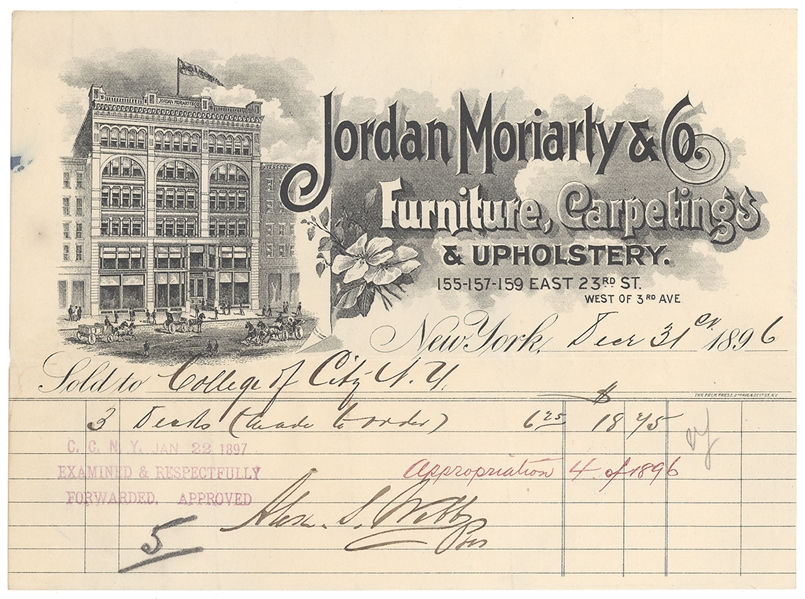 JORDAN MORIARTY & CO.
Jordan Moriarty & Co.
Furniture, Carpetings
& UPHOLSTERY.
155-157-159 EAST 23RD ST.
WEST OF 3RD AVE
New York, Decr 31 1896
Sold to College of City N.Y.
$
3 Desks (made to order) 6 25 18 75
C. C. N. Y. JAN 22 1897
EXAMINED & RESPECTFULLY
FORWARDED. APPROVED
Appropriation 4 of 1896
Alex. S. Webb
Pres
5